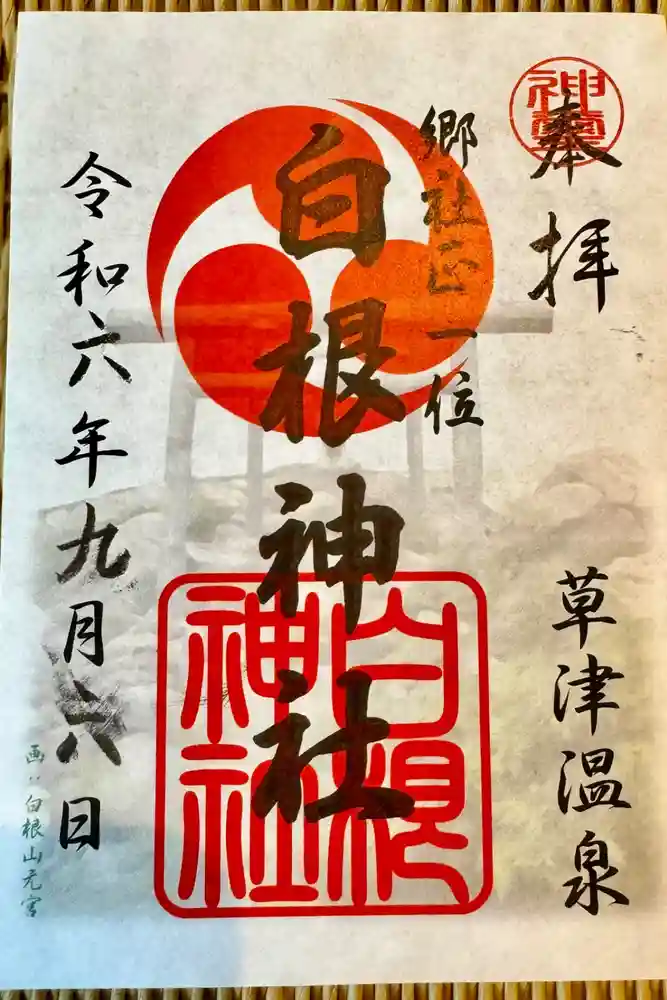 奉拝
草津温泉
郷社正一位
白根神社
白根
神社
令和六年九月六日
画：白根山元宮